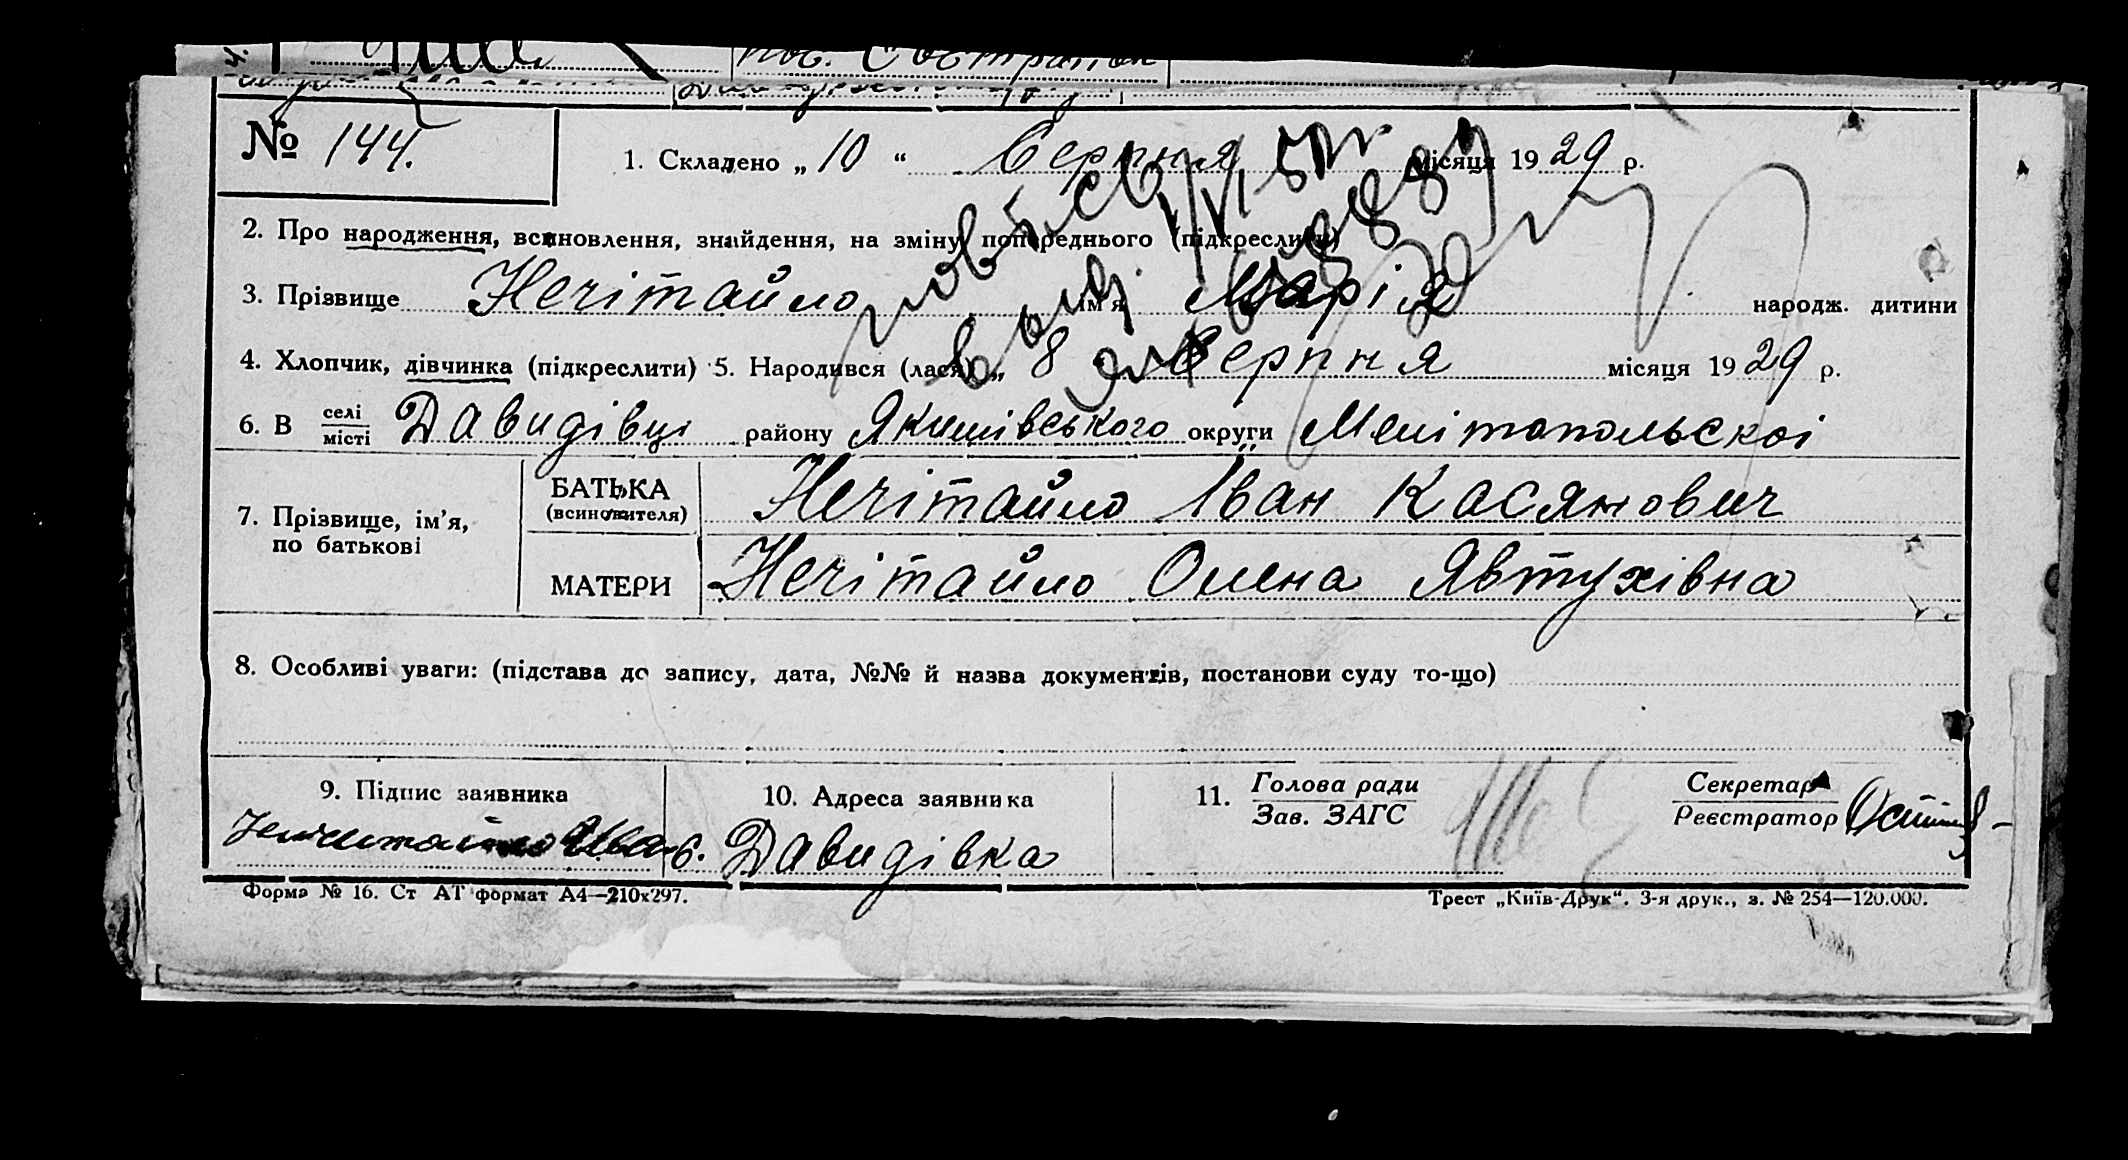 № 144. 1. Складено „ 10 “ Серпня місяця 1929 р.
2. Про народження, всиновлення, знайдення, на зміну попереднього (підкреслити)
3. Прізвище Нечітайло ім'я Марія народж. дитини
4. Хлопчик, дівчинка (підкреслити) 5. Народився (лася) „ 8 “ Серпня місяця 1929 р.
6. В селі місті Давидівці району Якимівського округи Мелітопольскоі
7. Прізвище, ім’я, по батькові
БАТЬКА (всиновителя) Нечітайло Іван Касянович
МАТЕРИ Нечітайло Олена Явтухівна
8. Особливі уваги: (підстава до запису, дата, №№ й назва документів, постанови суду то-що)
9. Підпис заявника 10. Адреса заявника 11. Голова ради Зав. ЗАГС Секретар Реєстратор
с. Давидівка
Форма № 16. Ст АТ формат А4—210х297. Трест „Київ-Друк“. 3-я друк., з. № 254—120.000.